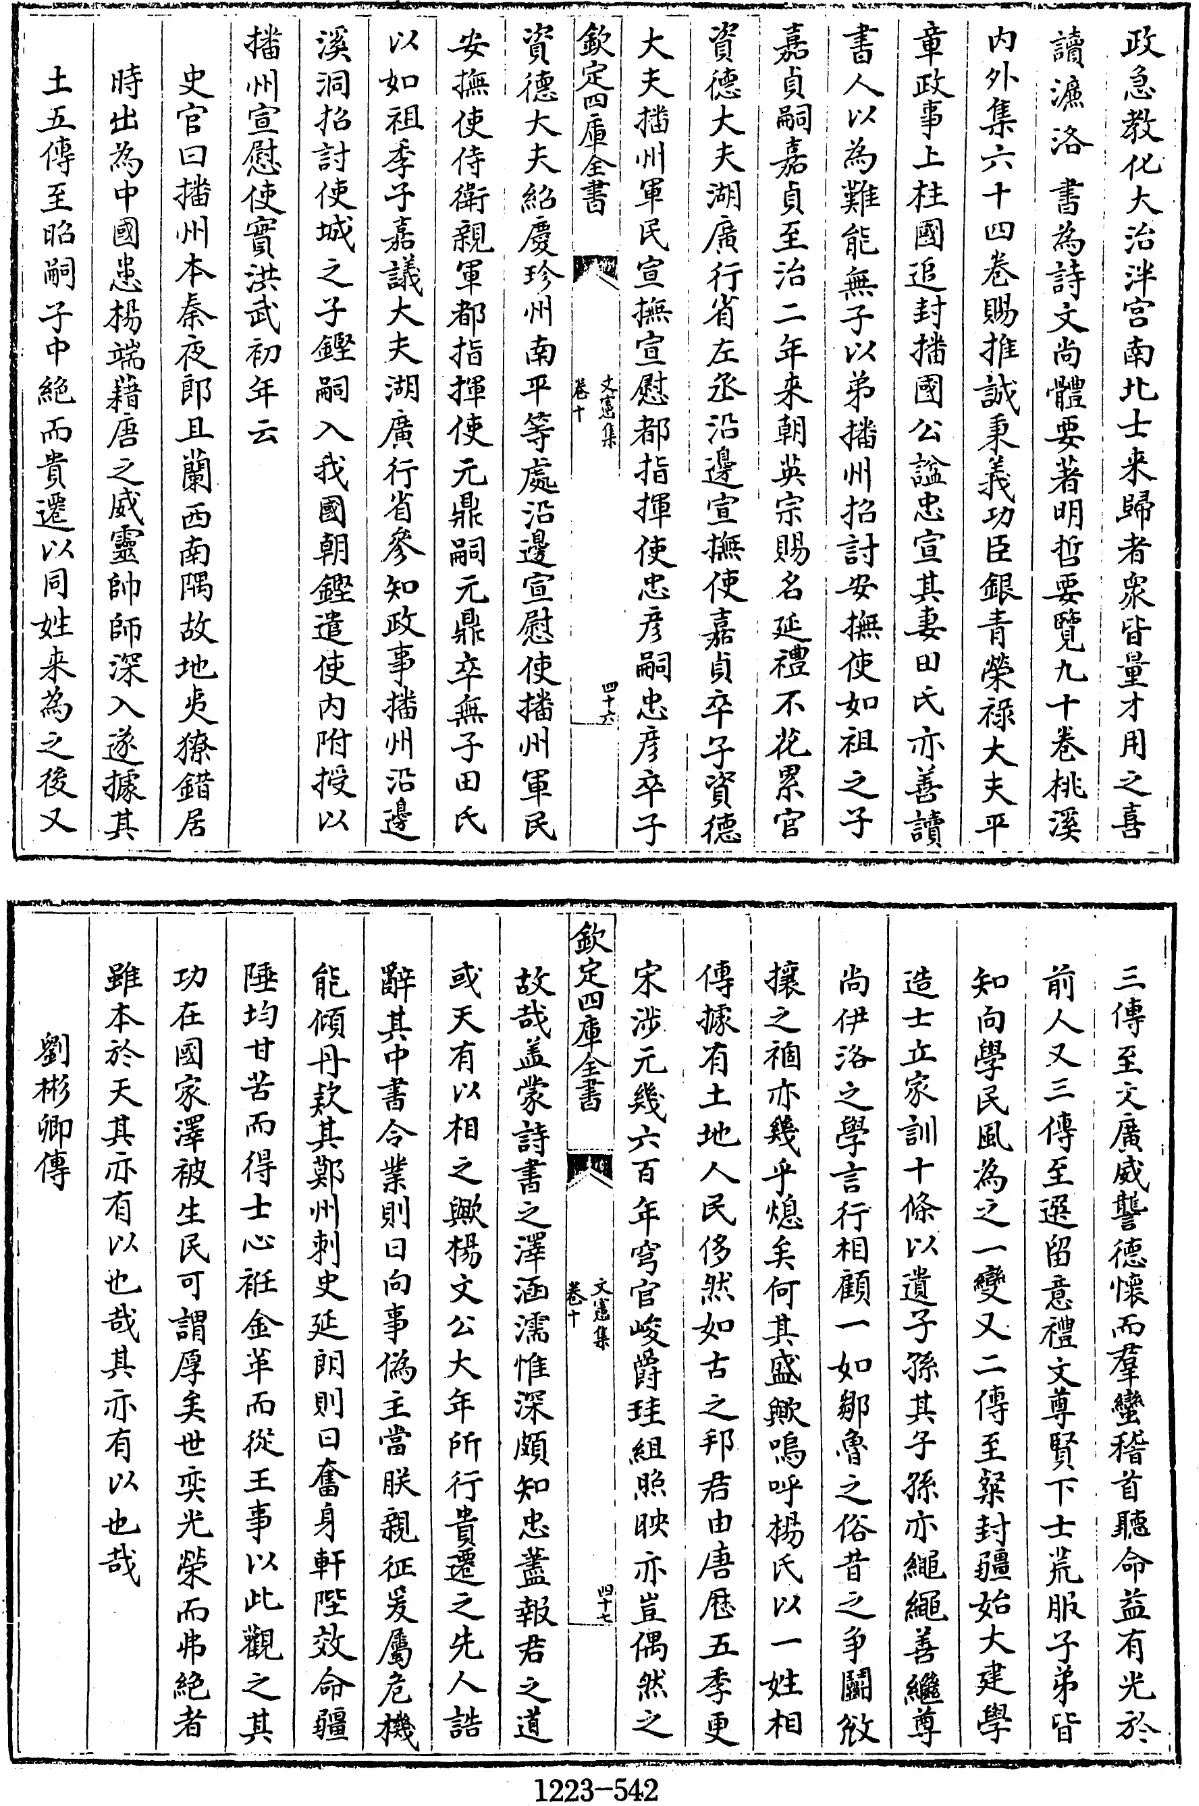 政急教化大治泮宫南北士来歸者衆皆量才用之喜
讀濂洛書為詩文尚體要著明哲要覽九十卷桃溪
内外集六十四卷賜推誠秉義功臣銀青榮禄大夫平
章政事上柱國追封播國公諡忠宣其妻田氏亦善讀
書人以為難能無子以弟播州招討安撫使如祖之子
嘉貞嗣嘉貞至治二年来朝英宗賜名延禮不花累官
資德大夫湖廣行省左丞沿邊宣撫使嘉貞卒子資德
大夫播州軍民宣撫宣慰都指揮使忠彦嗣忠彦卒子
欽定四庫全書
文憲集
卷十
四十六
資德大夫紹慶珍州南平等處沿邊宣慰使播州軍民
安撫使侍衛親軍都指揮使元鼎嗣元鼎卒無子田氏
以如祖季子嘉議大夫湖廣行省參知政事播州沿邊
溪洞招討使城之子鏗嗣入我國朝鏗遣使内附授以
播州宣慰使實洪武初年云
史官曰播州本秦夜郎且蘭西南隅故地夷獠錯居
時出為中國患楊端藉唐之威靈帥師深入遂據其
土五傳至昭嗣子中絶而貴遷以同姓来為之後又
三傳至文廣威讋德懷而羣蠻稽首聽命益有光於
前人又三傳至選留意禮文尊賢下士荒服子弟皆
知向學民風為之一變又二傳至粲封疆始大建學
造士立家訓十條以遺子孫其子孫亦繩繩善繼尊
尚伊洛之學言行相顧一如鄒魯之俗昔之争鬭攽
攘之禍亦幾乎熄矣何其盛歟嗚呼楊氏以一姓相
傳據有土地人民侈然如古之邦君由唐歷五季更
宋涉元幾六百年穹官峻爵珪組照映亦豈偶然之
欽定四庫全書
文憲集
卷十
四十七
故哉盖蒙詩書之澤涵濡惟深頗知忠藎報君之道
或天有以相之歟楊文公大年所行貴遷之先人誥
辭其中書令業則曰向事偽主當朕親征爰屬危機
能傾丹欵其鄭州刺史延朗則曰奮身軒陛效命疆
陲均甘苦而得士心袵金革而從王事以此觀之其
功在國家澤被生民可謂厚矣世奕光榮而弗絶者
雖本於天其亦有以也哉其亦有以也哉
劉彬卿傳
1223-542